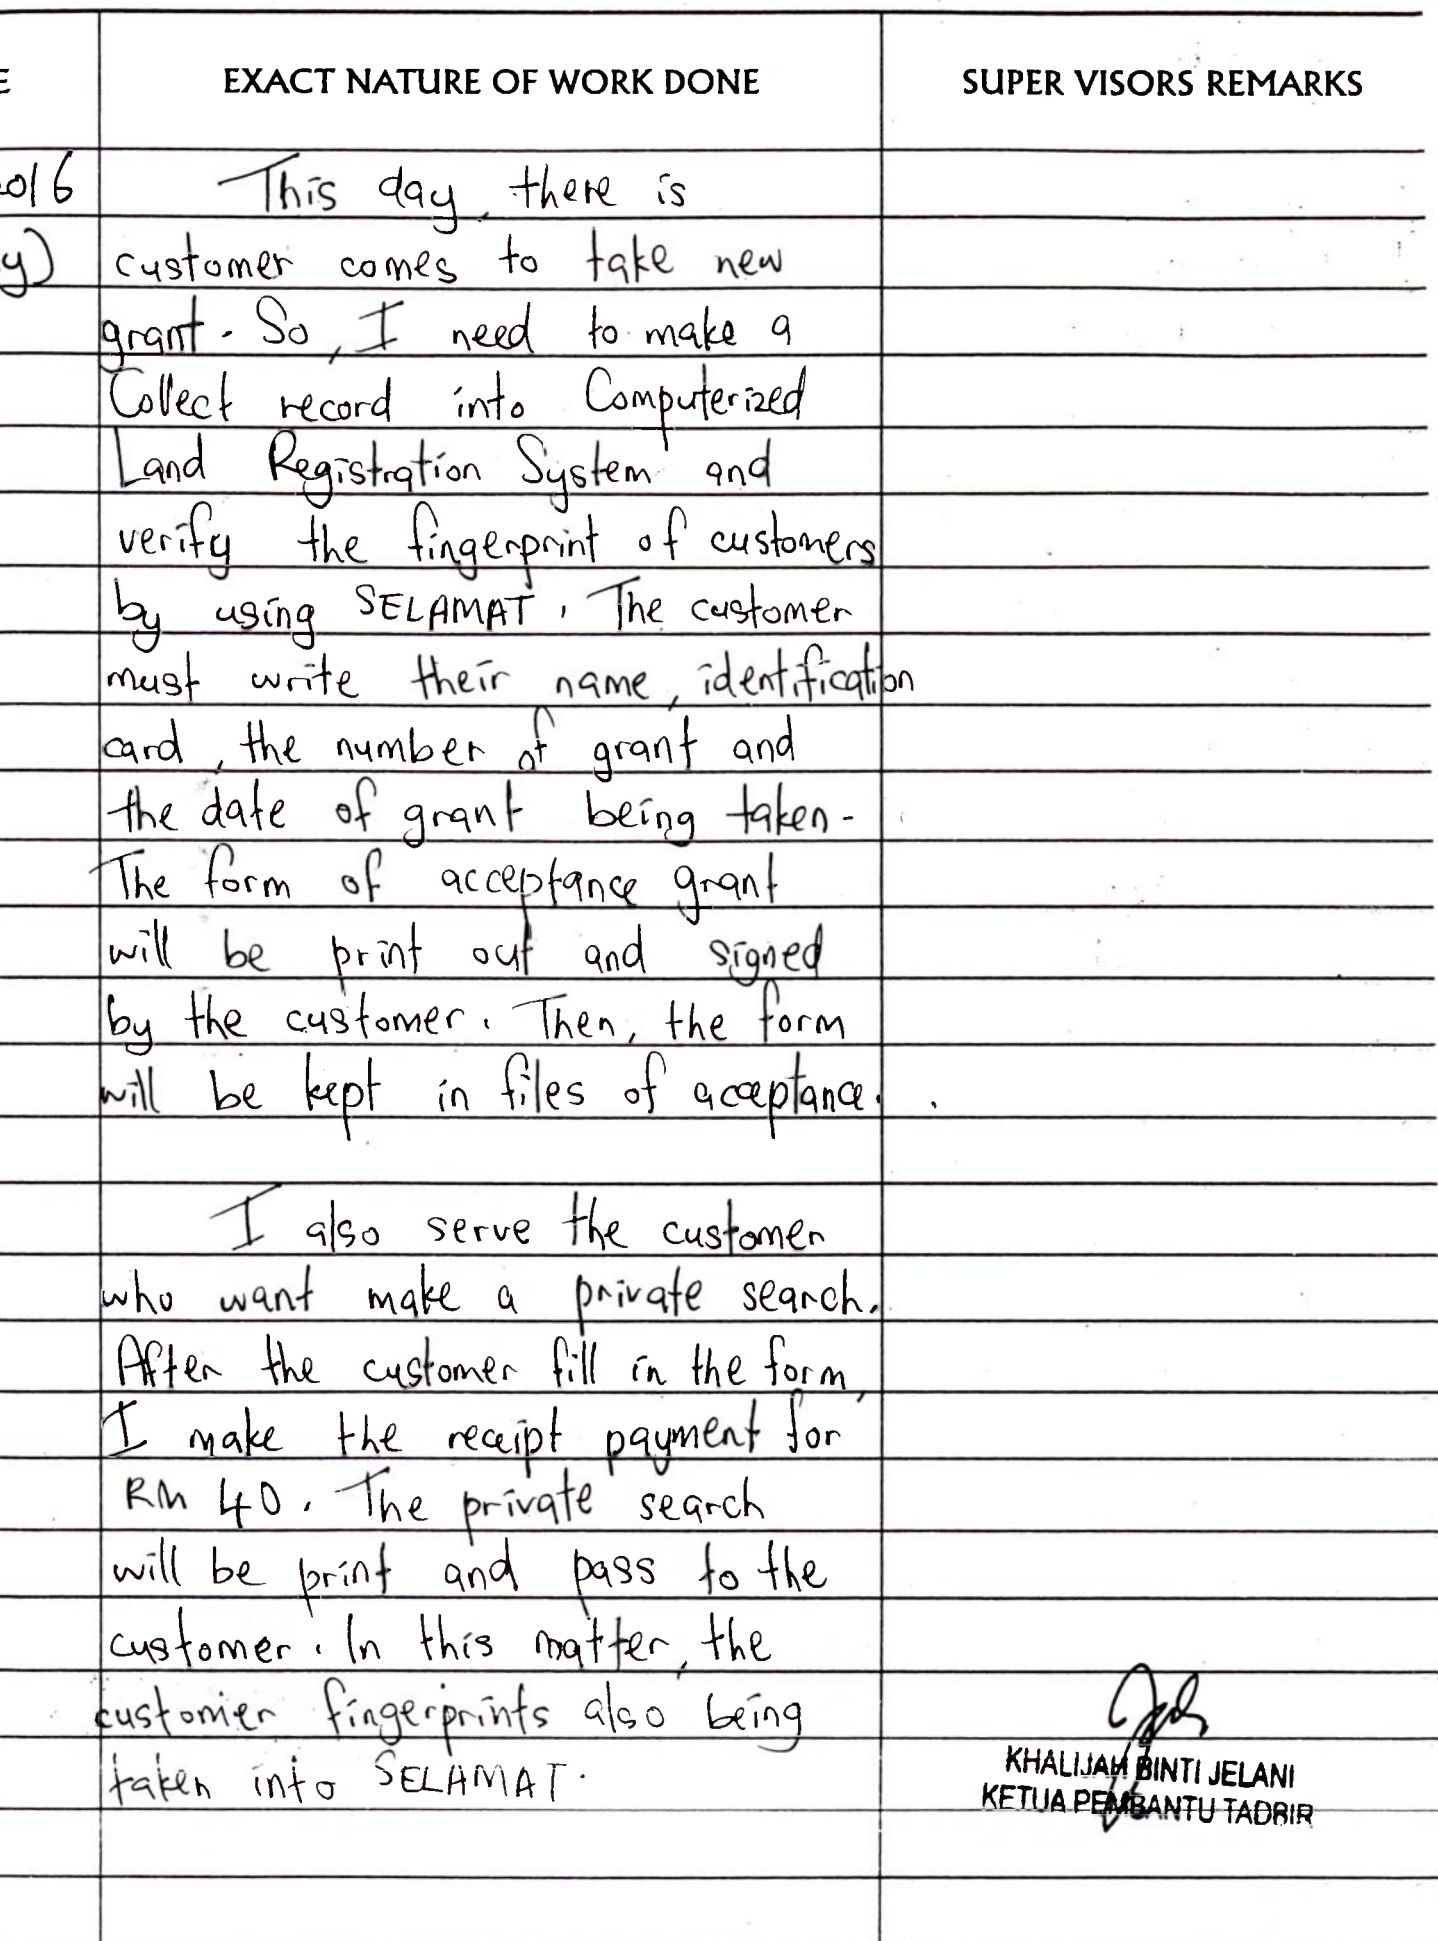 E
EXACT NATURE OF WORK DONE
SUPER VISORS REMARKS
2016
y)
This day, there is
customer comes to take new
grant. So, I need to make a
Collect record into Computerized
Land Registration System and
verify the fingerprint of customers
by using SELAMAT. The customer
must write their name, identification
card, the number of grant and
the date of grant being taken.
The form of acceptance grant
will be print out and signed
by the customer. Then, the form
will be kept in files of acceptance.
I also serve the customer
who want make a private search.
After the customer fill in the form,
I make the receipt payment for
RM 40. The private search
will be print and pass to the
customer. In this matter, the
customer fingerprints also being
taken into SELAMAT.
KHALIJAH BINTI JELANI
KETUA PEMBANTU TADBIR